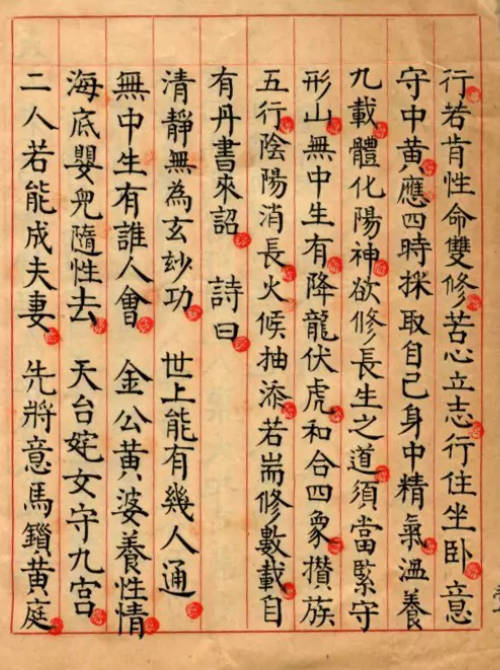 行若肯性命雙修苦心立志行住坐卧意
守中黃應四時採取自己身中精氣溫養
九載體化陽神欲修長生之道須當緊守
形山無中生有降龍伏虎和合四象攢族
五行陰陽消長火候抽添若耑修數載自
有丹書來詔 詩曰
清靜無為玄玅功 世上能有幾人通
無中生有誰人會 金公黃婆養性情
海底嬰兒隨性去 天台姹女守九宮
二人若能成夫妻 先將意馬鎖黃庭